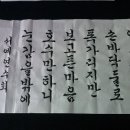 손바닥둘로
폭가리지만
보고픈마음
호수만하니
눈감을밖에
서예연수회